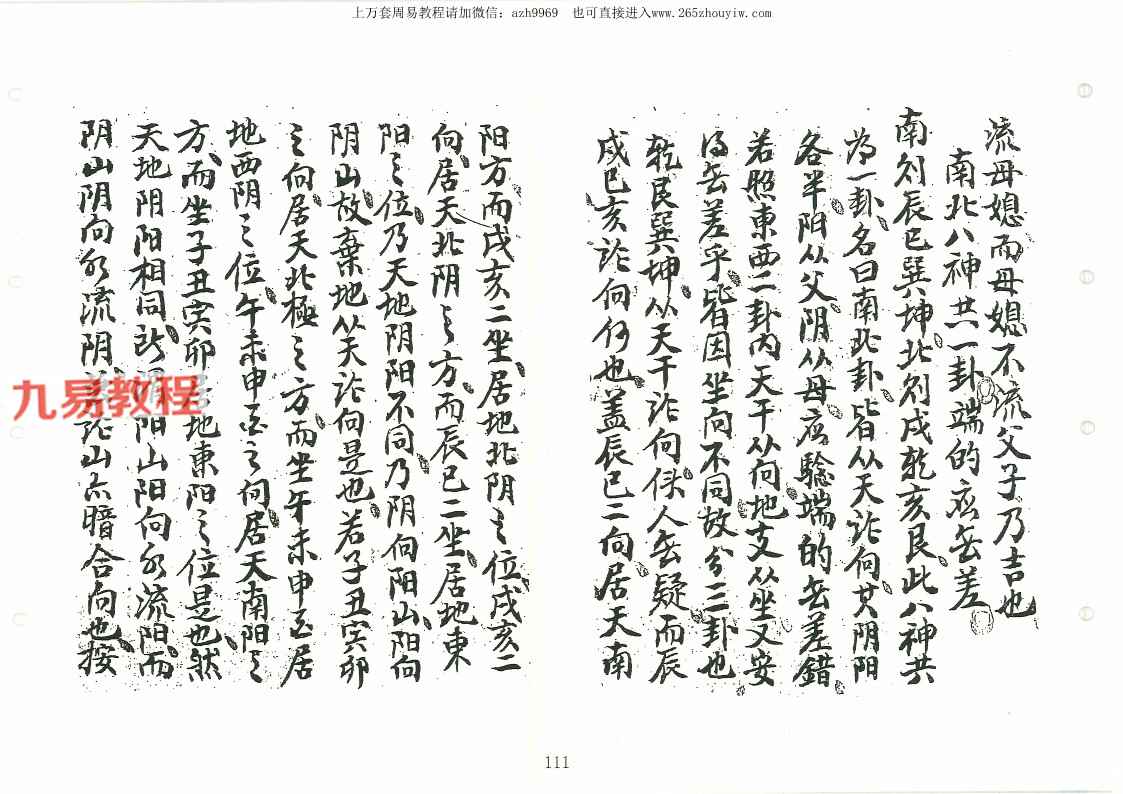 上万套周易教程请加微信：azh9969 也可直接进入www.265zhouyiw.com
流母媳而母媳不流父子乃吉也
南北八神共一卦端的应无差
南则辰巳巽坤北则戌乾亥艮此八神共
为一卦名曰南北卦皆从天论向其阴阳
各半阳从父阴从母应验端的无差错
若照東西二卦内天干从向地支从坐又安
得无差乎皆因坐向不同故分三卦也
乾艮巽坤从天干论向保人无疑而辰
戌巳亥论向何也盖辰巳二向居天南
阳方而戌亥二坐居地北阴之位戌亥二
向居天北阴之方而辰巳二坐居地東
阳之位乃天地阴阳不同乃阴向阳山阳向
阴山故棄地从天论向是也若子丑寅卯
之向居天北極之方而坐午未申酉居
地西阴之位午未申酉之向居天南阳之
方而坐子丑寅卯居地東阳之位是也然
天地阴阳相同所谓阳山阳向水流阳而
阴山阴向水流阴 论山亦暗合向也按
九易教程
111